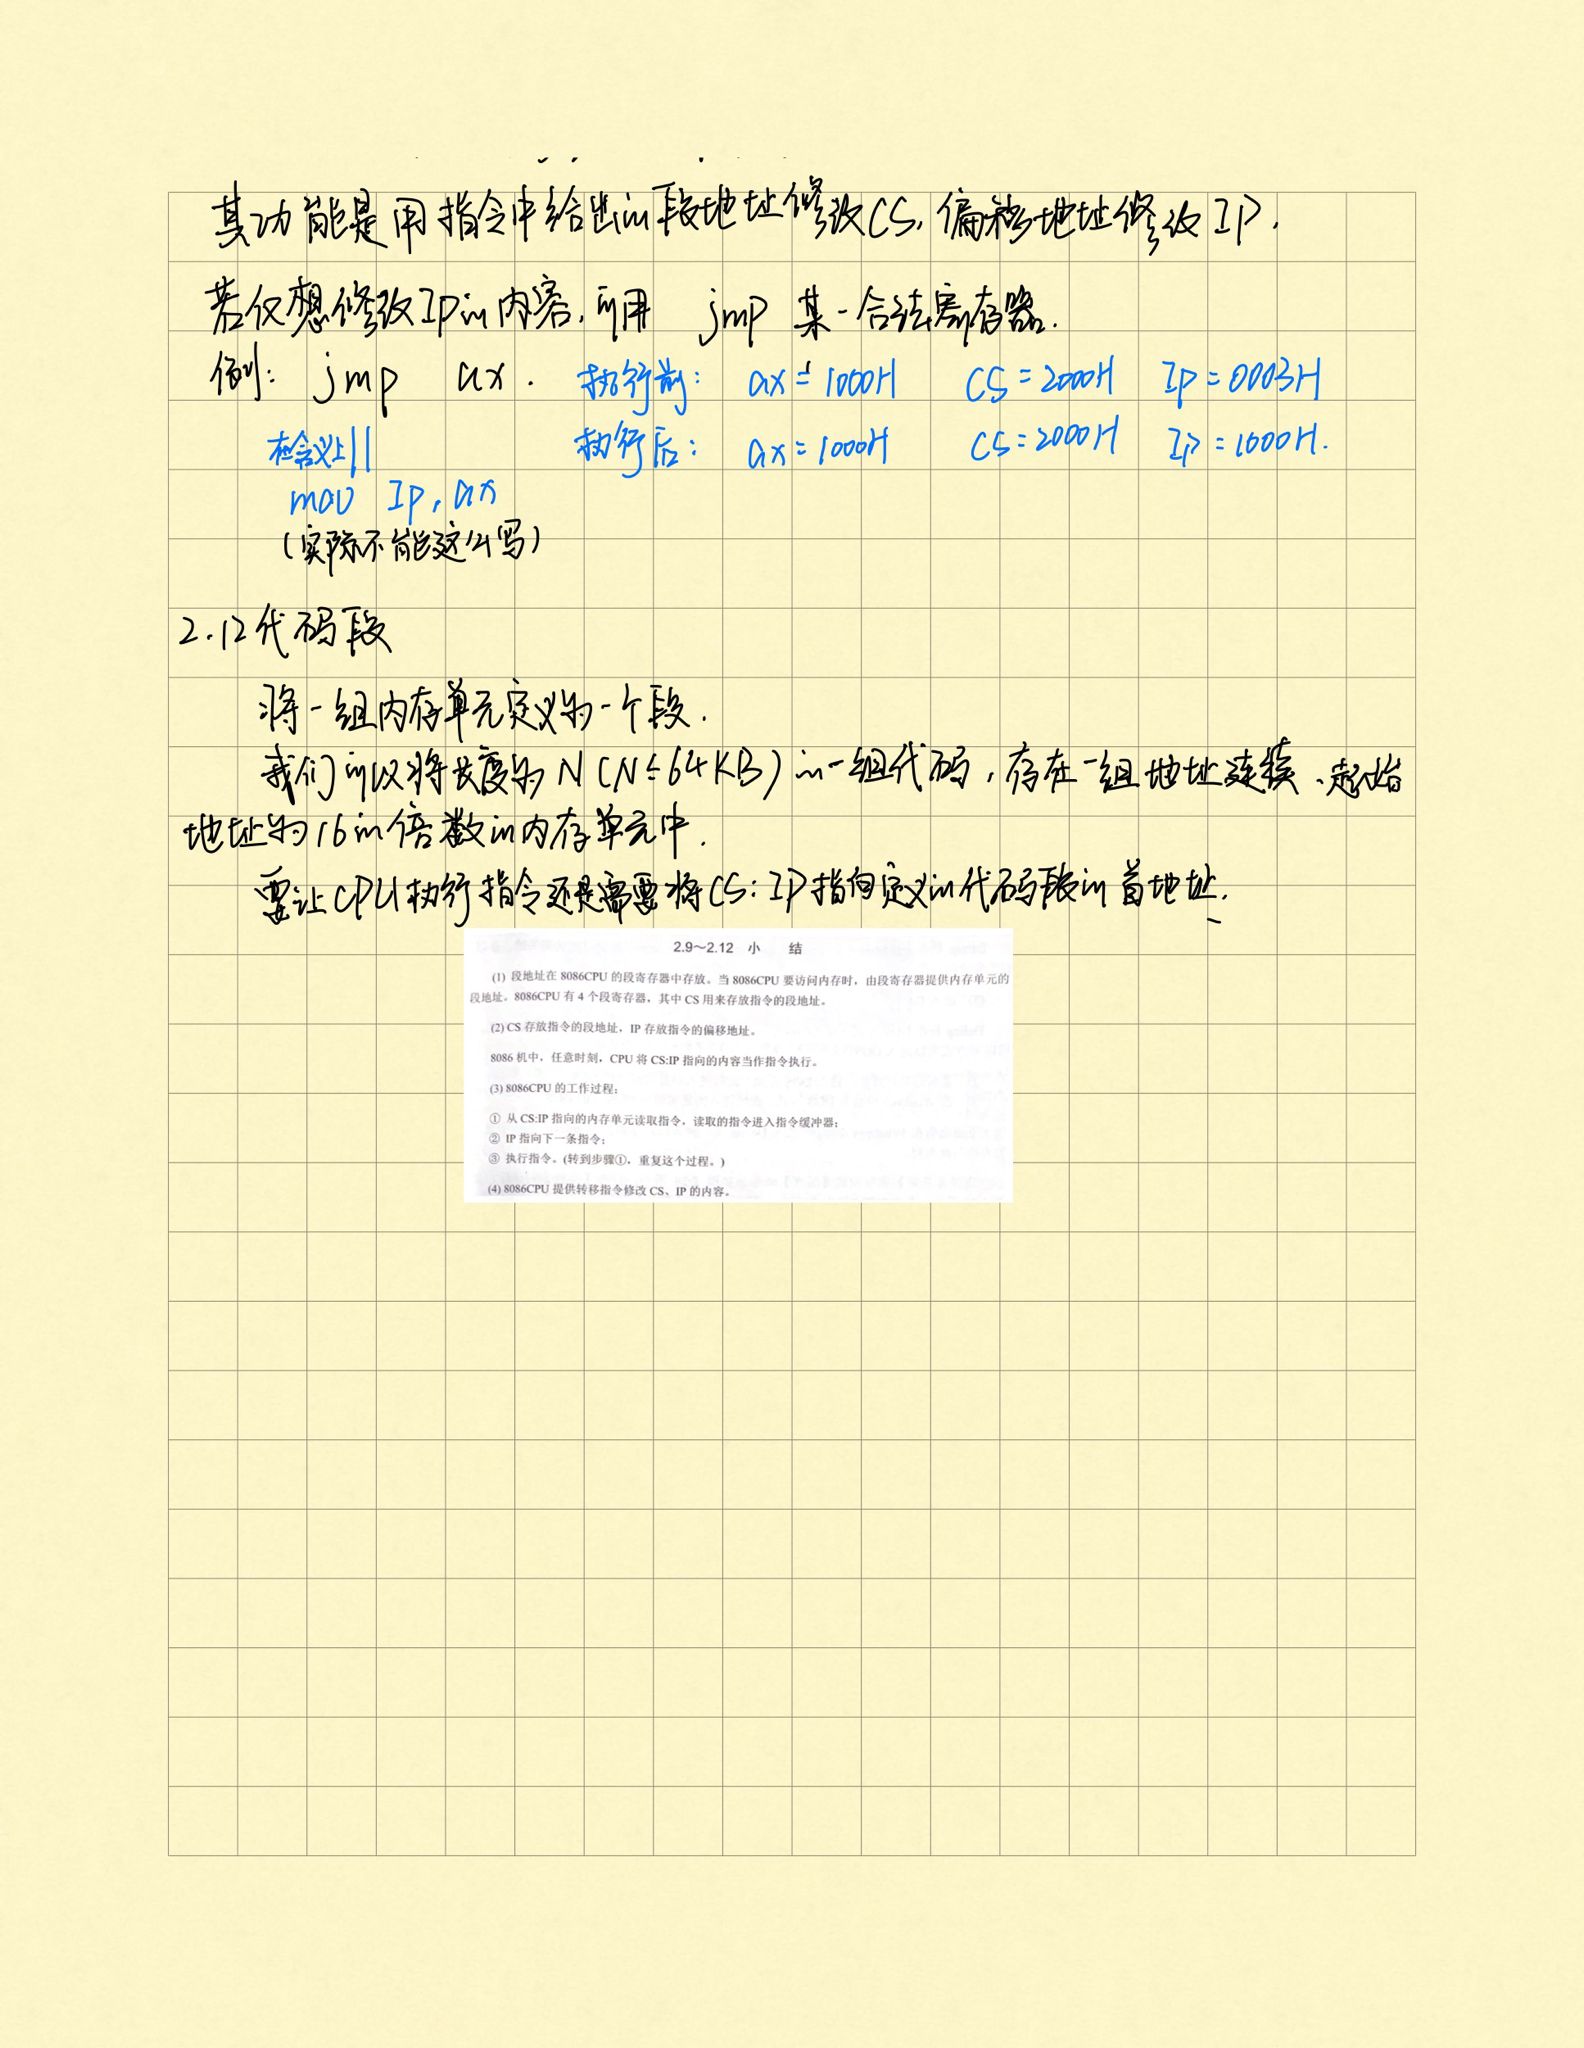 其功能是用指令中给出的段地址修改CS,偏移地址修改IP.
若仅想修改IP的内容,可用 jmp 某一合法寄存器.
例: jmp ax. 执行前: ax=1000H CS=2000H IP=0003H
在含义上|| 执行后: ax=1000H CS=2000H IP=1000H.
mov IP,ax
(实际不能这么写)
2.12代码段
将一组内存单元定义为一个段.
我们可以将长度为N(N≤64KB)的一组代码,存在一组地址连续、起始
地址为16的倍数的内存单元中.
要让CPU执行指令还是需要将CS:IP指向定义的代码段的首地址.
2.9～2.12 小 结
(1) 段地址在 8086CPU 的段寄存器中存放。当 8086CPU 要访问内存时，由段寄存器提供内存单元的
段地址。8086CPU 有 4 个段寄存器，其中 CS 用来存放指令的段地址。
(2) CS 存放指令的段地址，IP 存放指令的偏移地址。
8086 机中，任意时刻，CPU 将 CS:IP 指向的内容当作指令执行。
(3) 8086CPU 的工作过程：
① 从 CS:IP 指向的内存单元读取指令，读取的指令进入指令缓冲器；
② IP 指向下一条指令；
③ 执行指令。(转到步骤①，重复这个过程。)
(4) 8086CPU 提供转移指令修改 CS、IP 的内容。